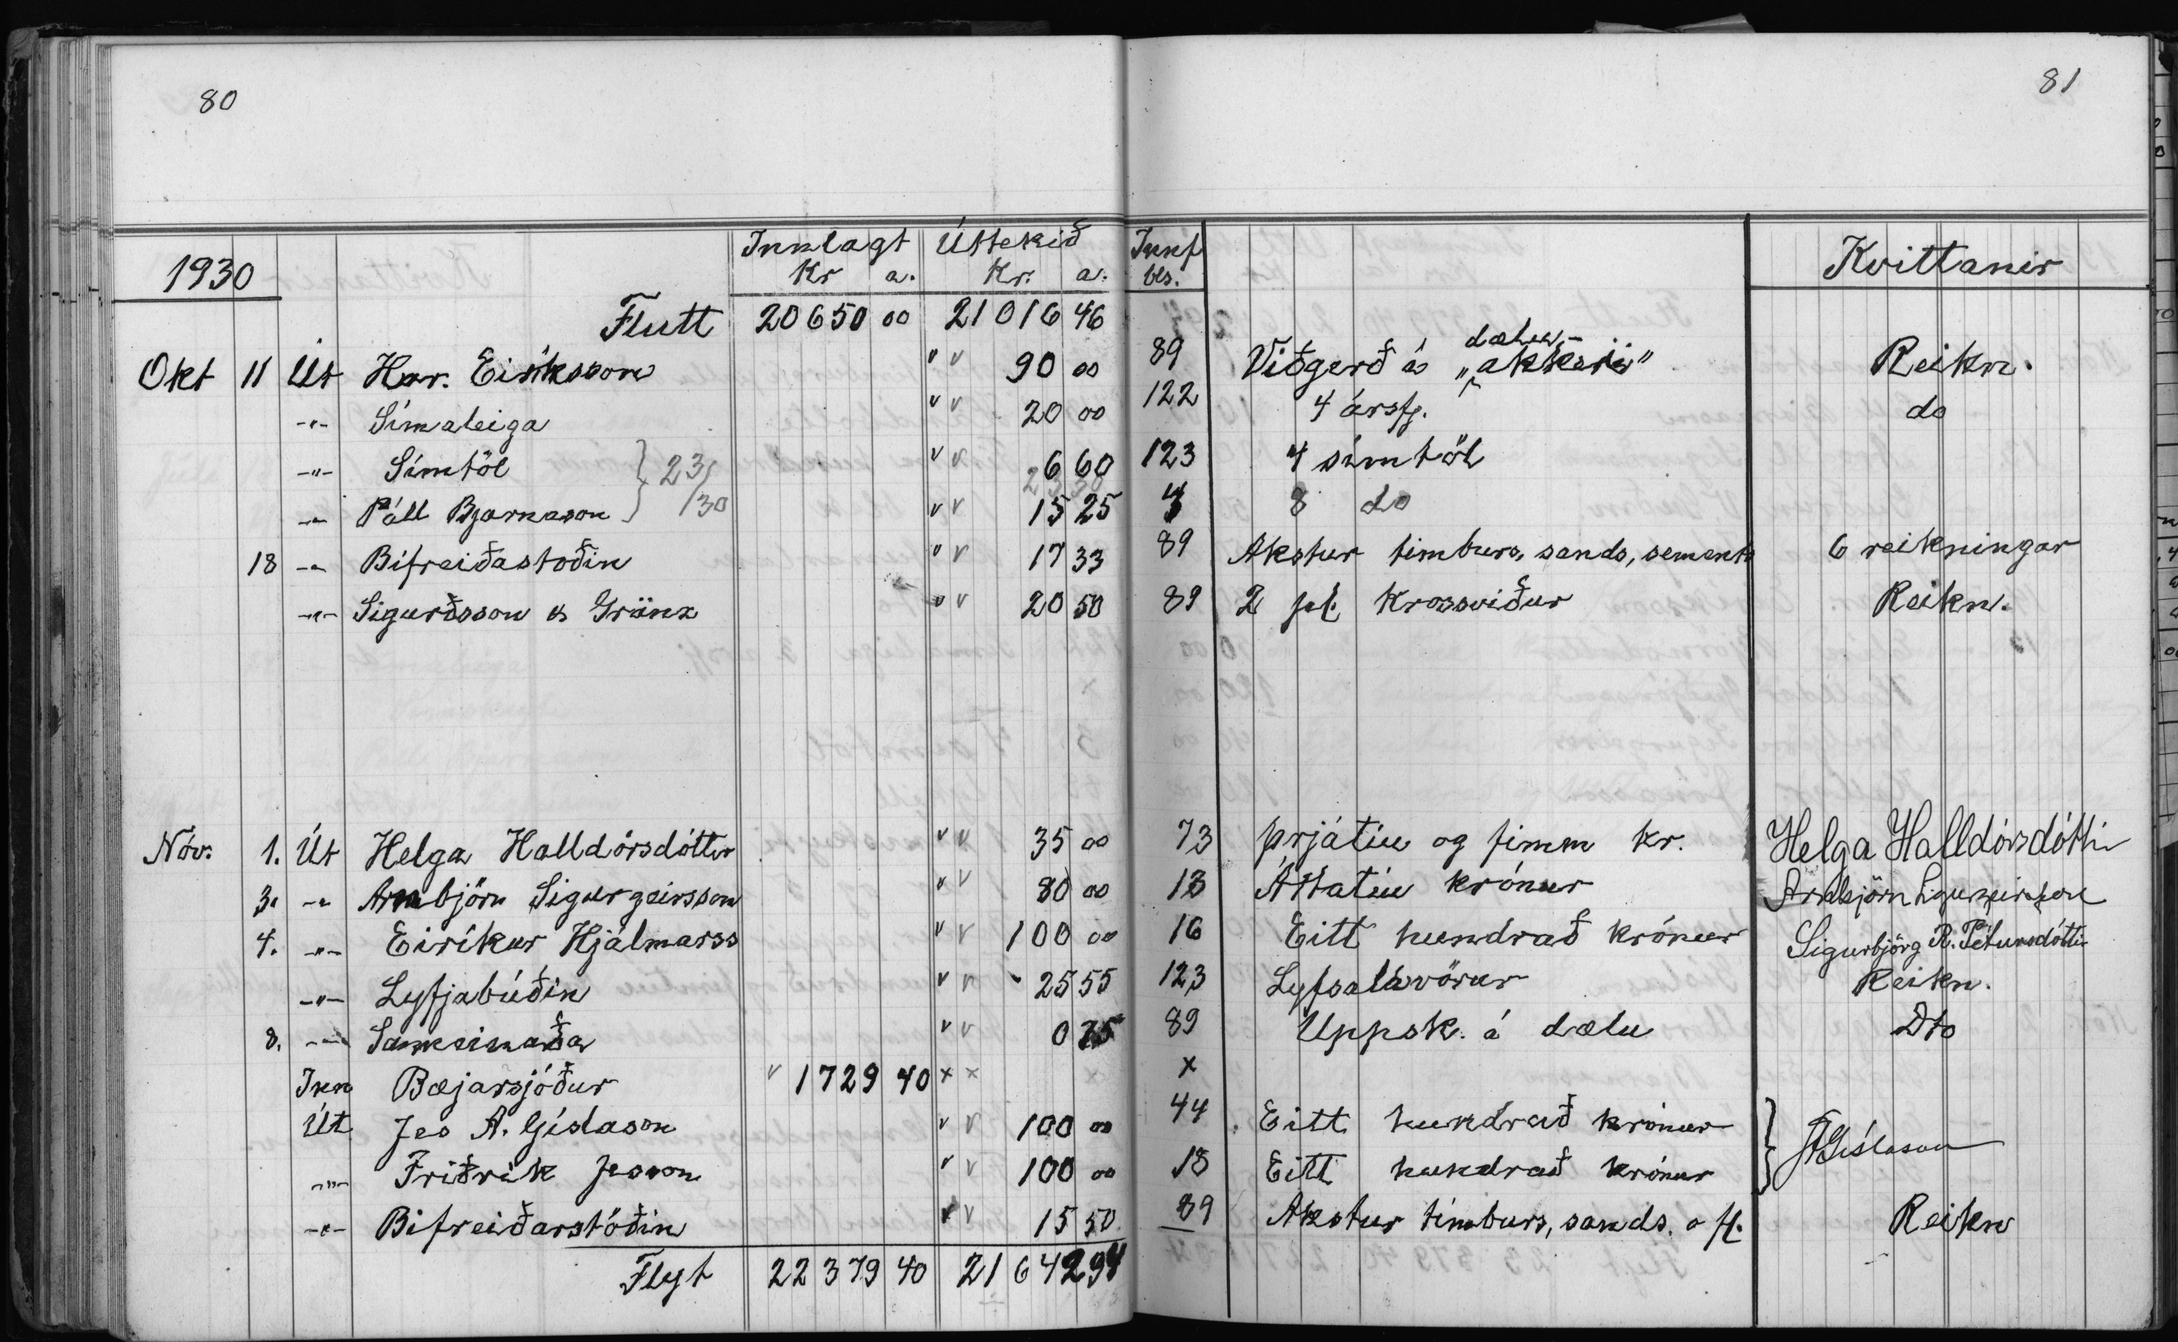 80
81
1930 Innlagt Kr a. Úttekið Kr. a. Innf bls. Kvittanir
Flutt 20650 00 21016 46
Okt 11 Út Har. Eiríksson " " 90 00 89 Viðgerð á „dælu-akkeri" Reikn.
-"- Símaleiga " " 20 00 122 4 ársfj. do
-"- Símtöl } 23/ " " 6 60 123 4 símtöl
-"- Páll Bjarnason } /30 " " 15 25 3 8 do
18 -"- Bifreiðastöðin " " 17 33 89 Akstur timburs, sands, sements 6 reikningar
-"- Sigurðsson & Gränz " " 20 50 89 2 pl. Krossviður Reikn.
Nóv. 1. Út Helga Halldórsdóttir " " 35 00 73 þrjátíu og fimm kr. Helga Halldórsdóttir
3. -"- Arnbjörn Sigurgeirsson " " 80 00 13 Áttatíu krónur Arnbjörn Sigurgeirsson
4. -"- Eiríkur Hjálmarss " " 100 00 16 Eitt hundrað krónur Sigurbjörg R. Pétursdóttir
-"- Lyfjabúðin " " 25 55 123 Lyfsalavörur Reikn.
8. -"- " " 0 75 89 Uppsk. á dælu Dto
Inn Bæjarsjóður " 1729 40 x x x
Út Jes A. Gíslason " " 100 00 44 Eitt hundrað krónur } JAGíslason
-"- Friðrik Jesson " " 100 00 18 Eitt hundrað krónur }
-"- Bifreiðarstöðin " " 15 50 89 Akstur timburs, sands. o fl. Reikn
Flyt 22379 40 21642 94